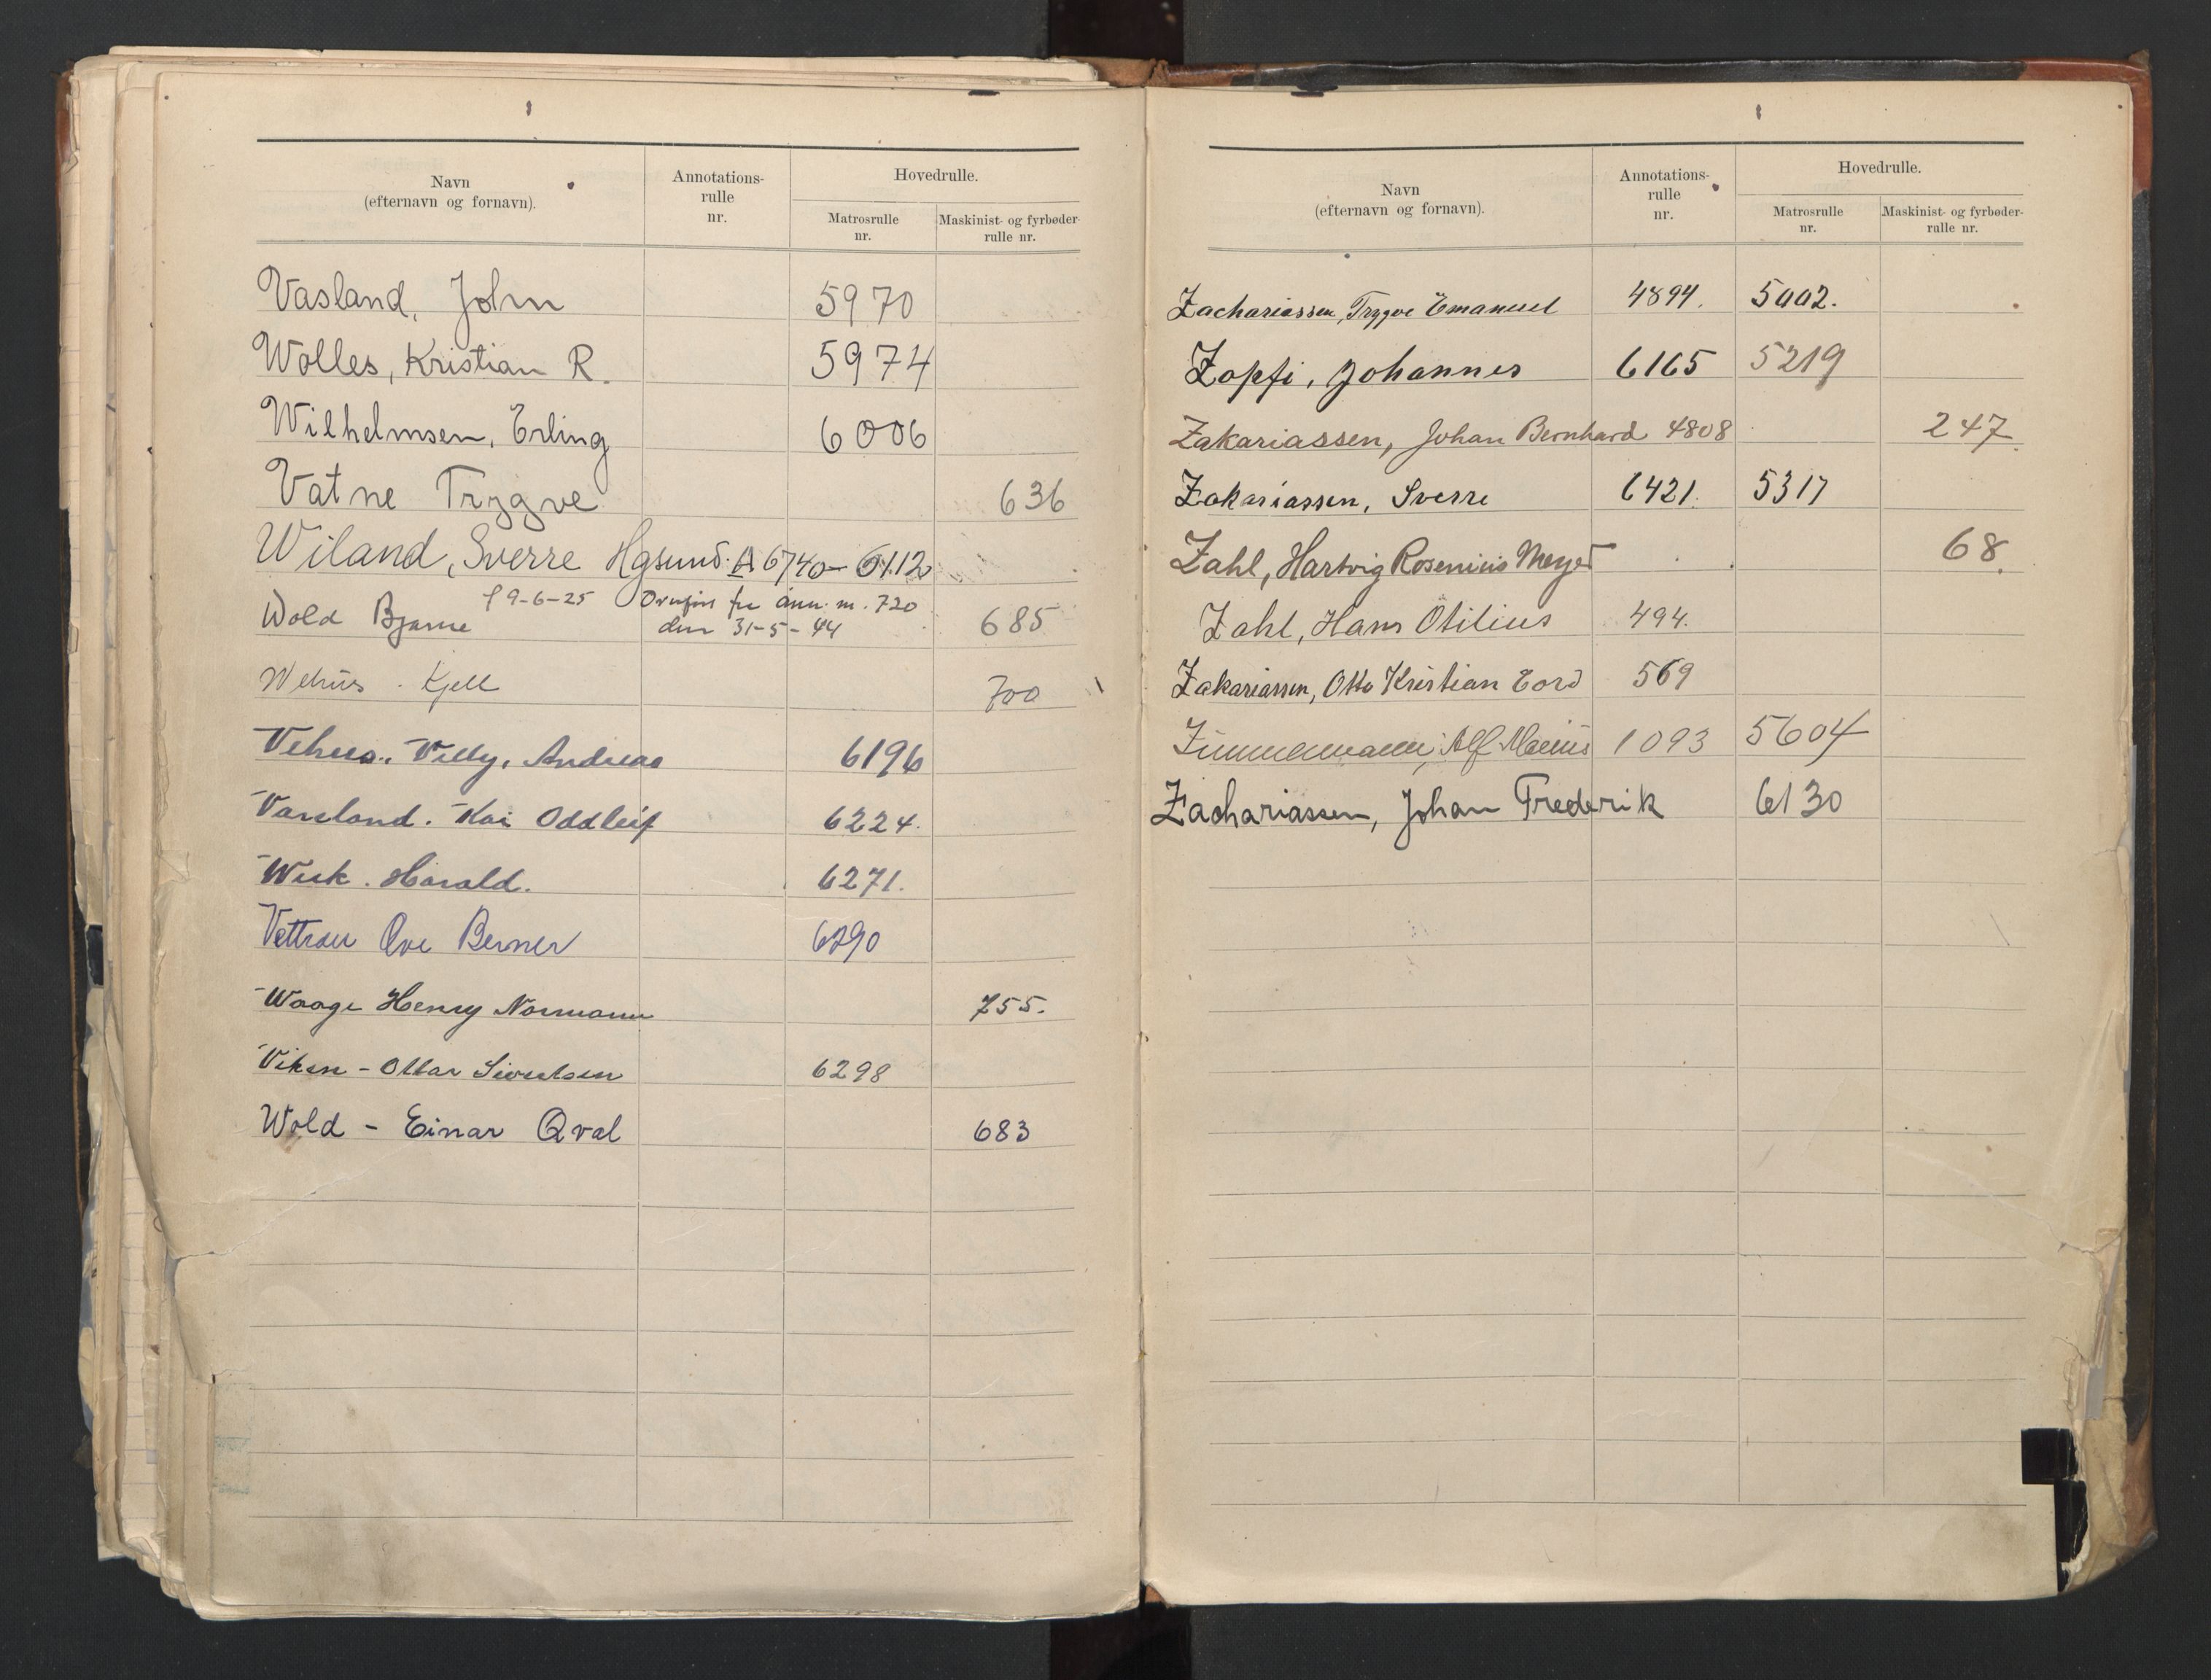 Navn
(efternavn og fornavn).
Annotations-
rulle
nr.
Hovedrulle.
Matrosrulle
nr.
Maskinist- og fyrbøder-
rulle nr.
Vasland, John 5970
Wolles, Kristian R. 5974
Wilhelmsen, Erling 6006
Vatne Trygve 636
Wiland, Sverre Hgsund. A 6740 - 6112
Wold Bjarne f 9-6-25 Overført fra ann. nr. 720
den 31-5-44 685
Wehus. Kjell 700
Vehus. Villy. Andreas 6196
Varsland. Kai Oddleif 6224.
Wiik. Harald. 6271.
Ove Berner 6290
Waage Henry Normann 755.
Viken - Ottar Sivertsen 6298
Wold - Einar Qval 683
Navn
(efternavn og fornavn).
Annotations-
rulle
nr.
Hovedrulle.
Matrosrulle
nr.
Maskinist- og fyrbøder-
rulle nr.
Zachariassen, Trygve Emanuel 4894. 5002.
Zopfi, Johannes 6165 5219
Zakariassen, Johan Bernhard 4808 247.
Zakariassen, Sverre 6421. 5317
Zahl, Hartvig Rosenius Meyer 68.
Zahl, Hans Otilius 494.
Zakariassen, Otto Kristian Tord 569
Zimmermann, Alf Marius 1093 5604
Zachariassen, Johan Frederik 6130